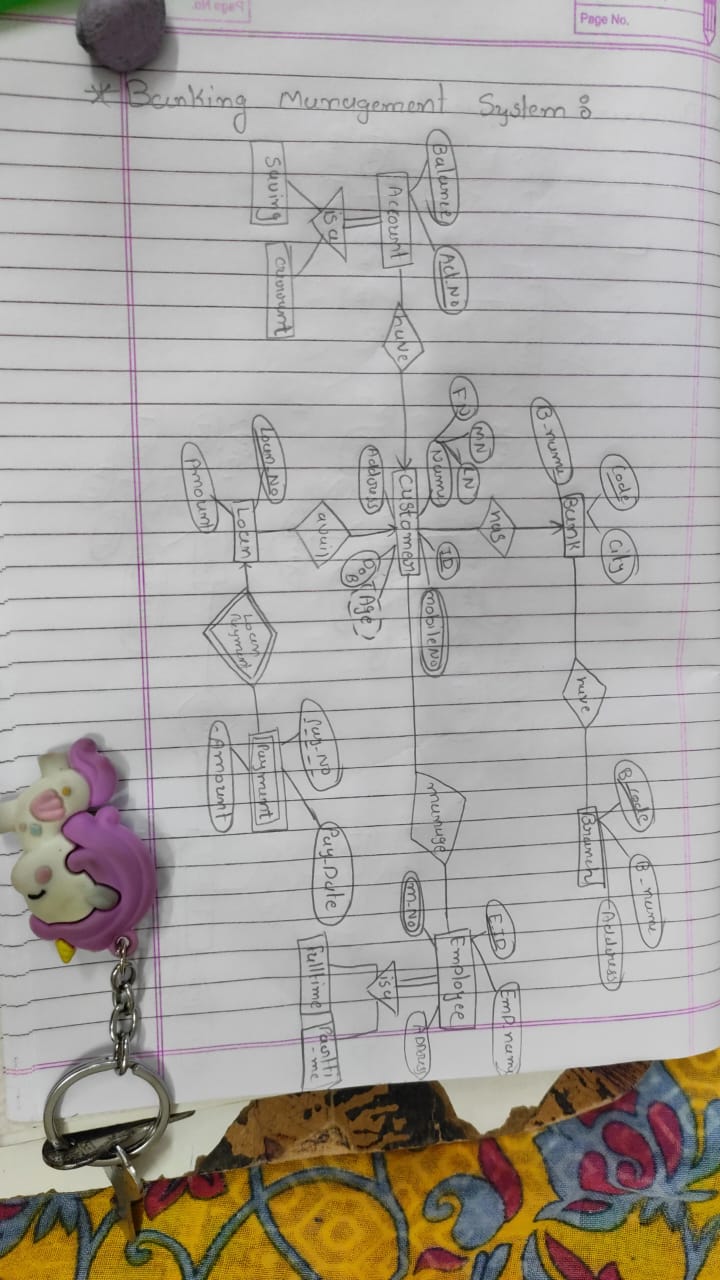 Page No.
* Banking Management System :
Code
City
B-name
Bank
have
B-code
B-name
Address
Branch
has
FN
MN
LN
Name
ID
mobile No
Customer
Address
DOB
Age
Balance
Act-No
Account
have
is a
Saving
Current
manage
E-ID
Emp.name
Employee
m-No
Address
is a
Fulltime
Partti
-me
avail
Loan-No
Loan
Amount
Loan
Payment
Pay-No
Pay-Date
Payment
-Amount